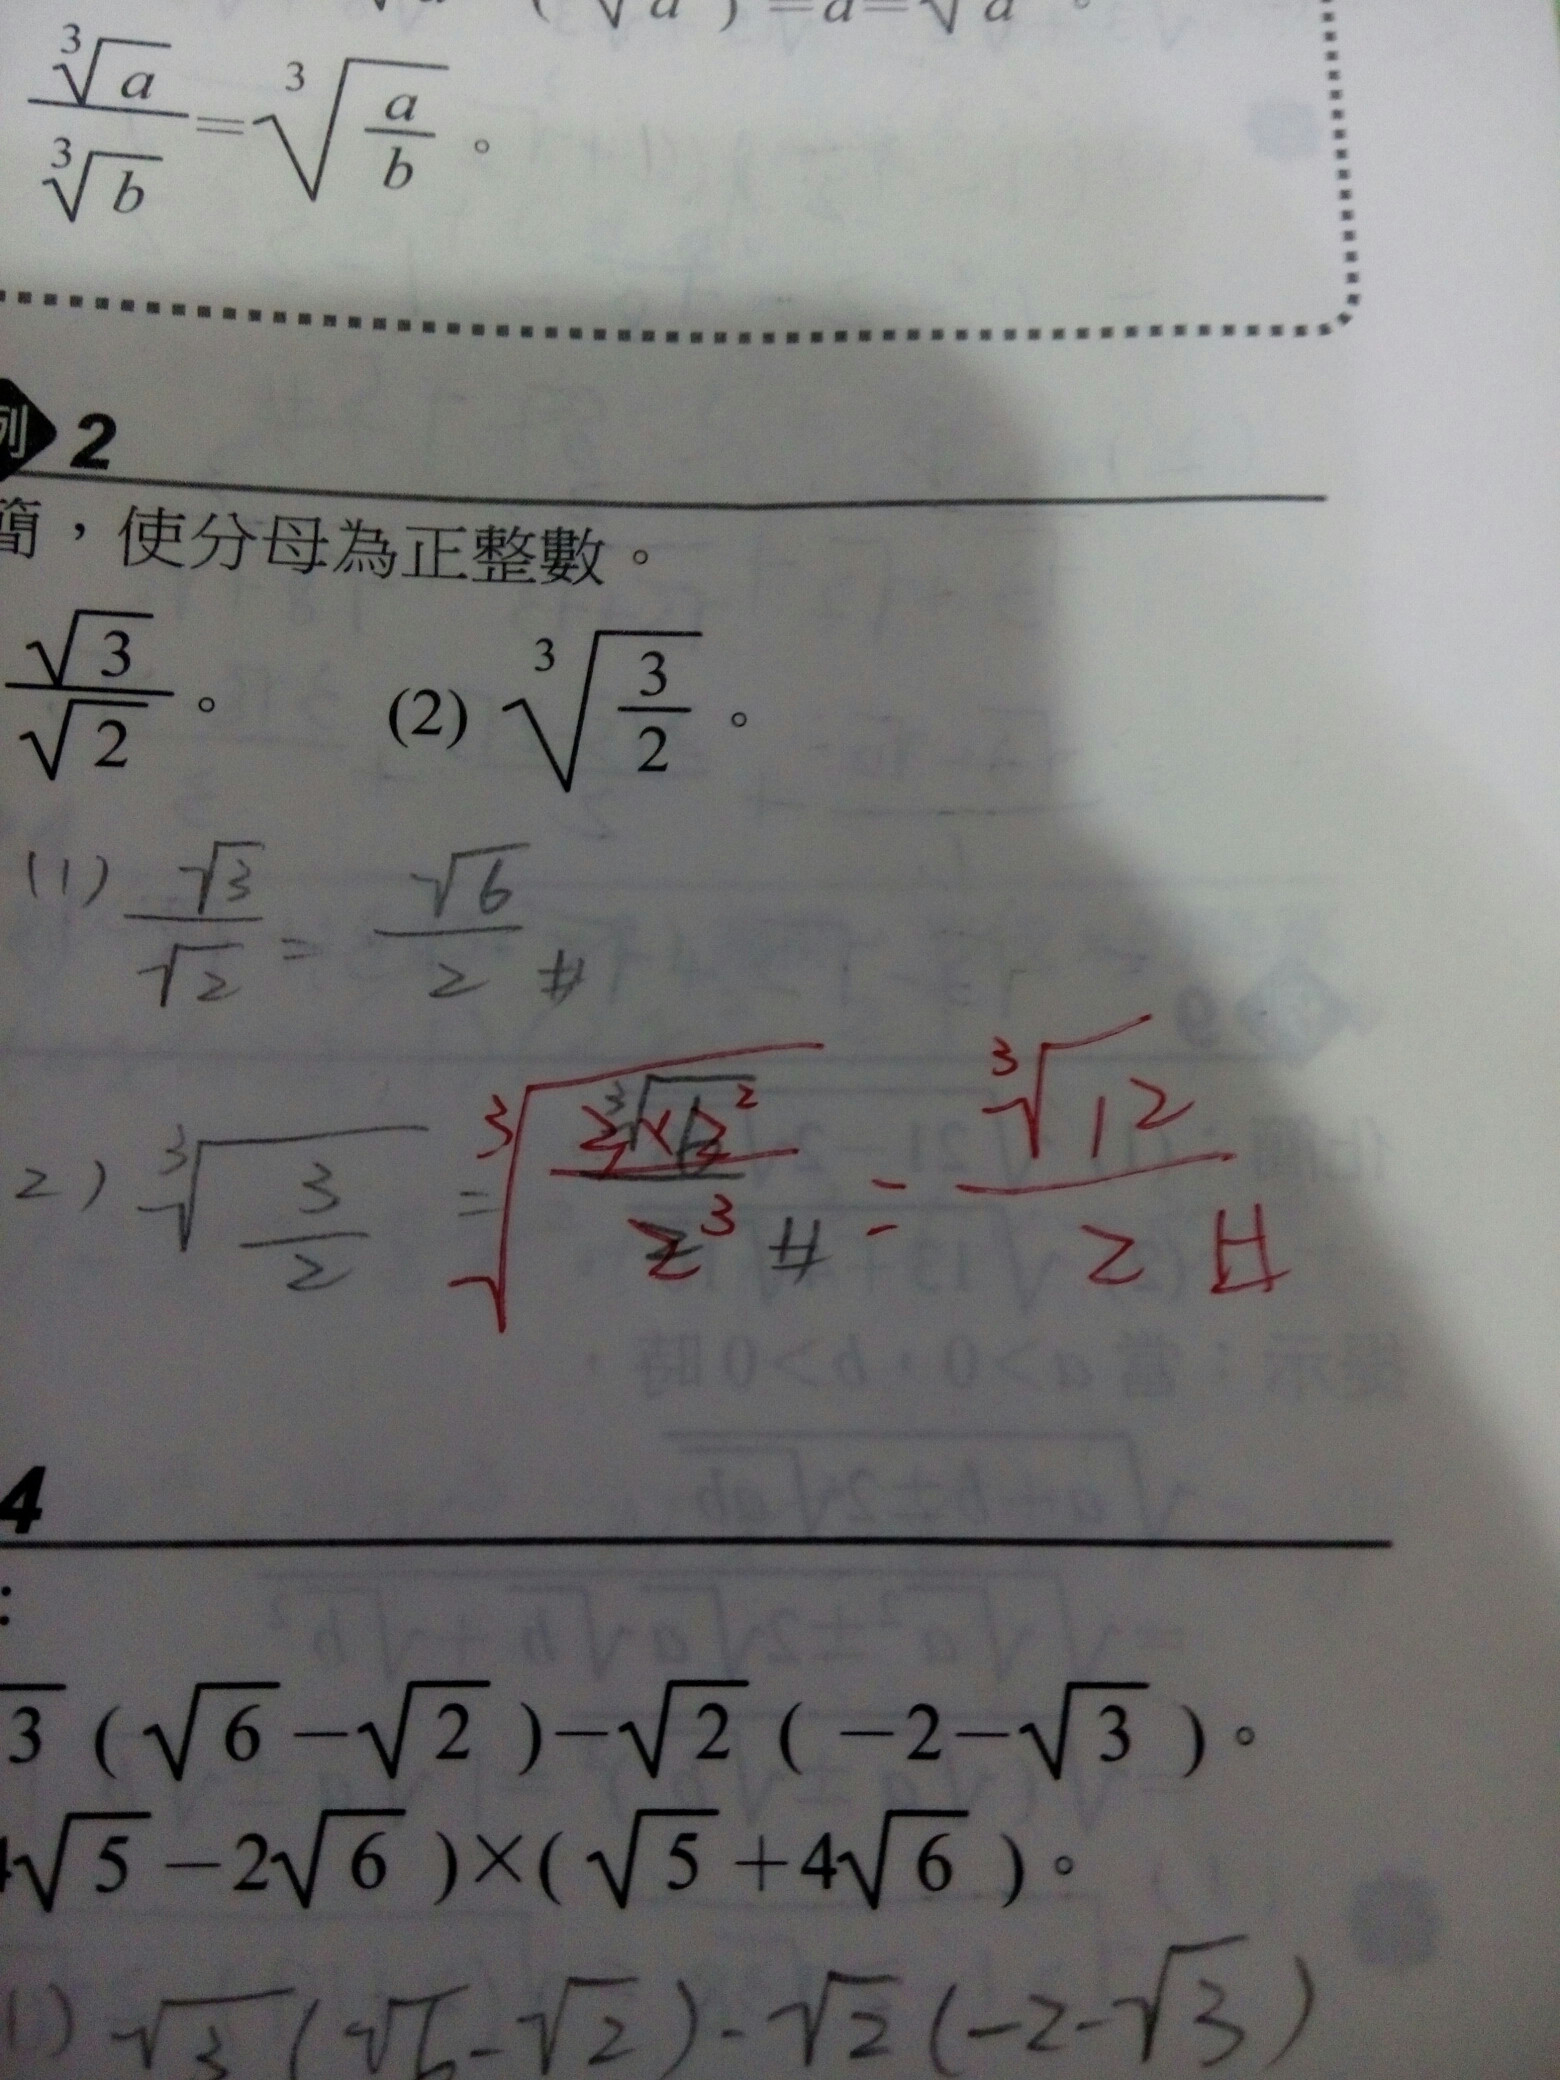 ∛a / ∛b = ∛(a/b) 。
例 2
簡，使分母為正整數。
√3 / √2 。 (2) ∛(3/2) 。
(1) √3 / √2 = √6 / 2 #
2) ∛(3/2) = ∛(3×2² / 2³) # = ∛12 / 2 #
4
:
3 ( √6 − √2 ) − √2 ( −2 − √3 )。
4√5 − 2√6 ) × ( √5 + 4√6 )。
1) √3 ( √6 - √2 ) - √2 ( -2 - √3 )